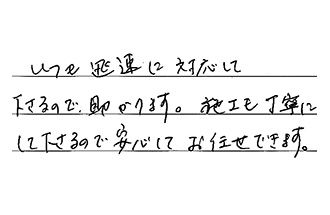 いつも迅速に対応して
下さるので、助かります。施工も丁寧に
して下さるので安心してお任せできます。